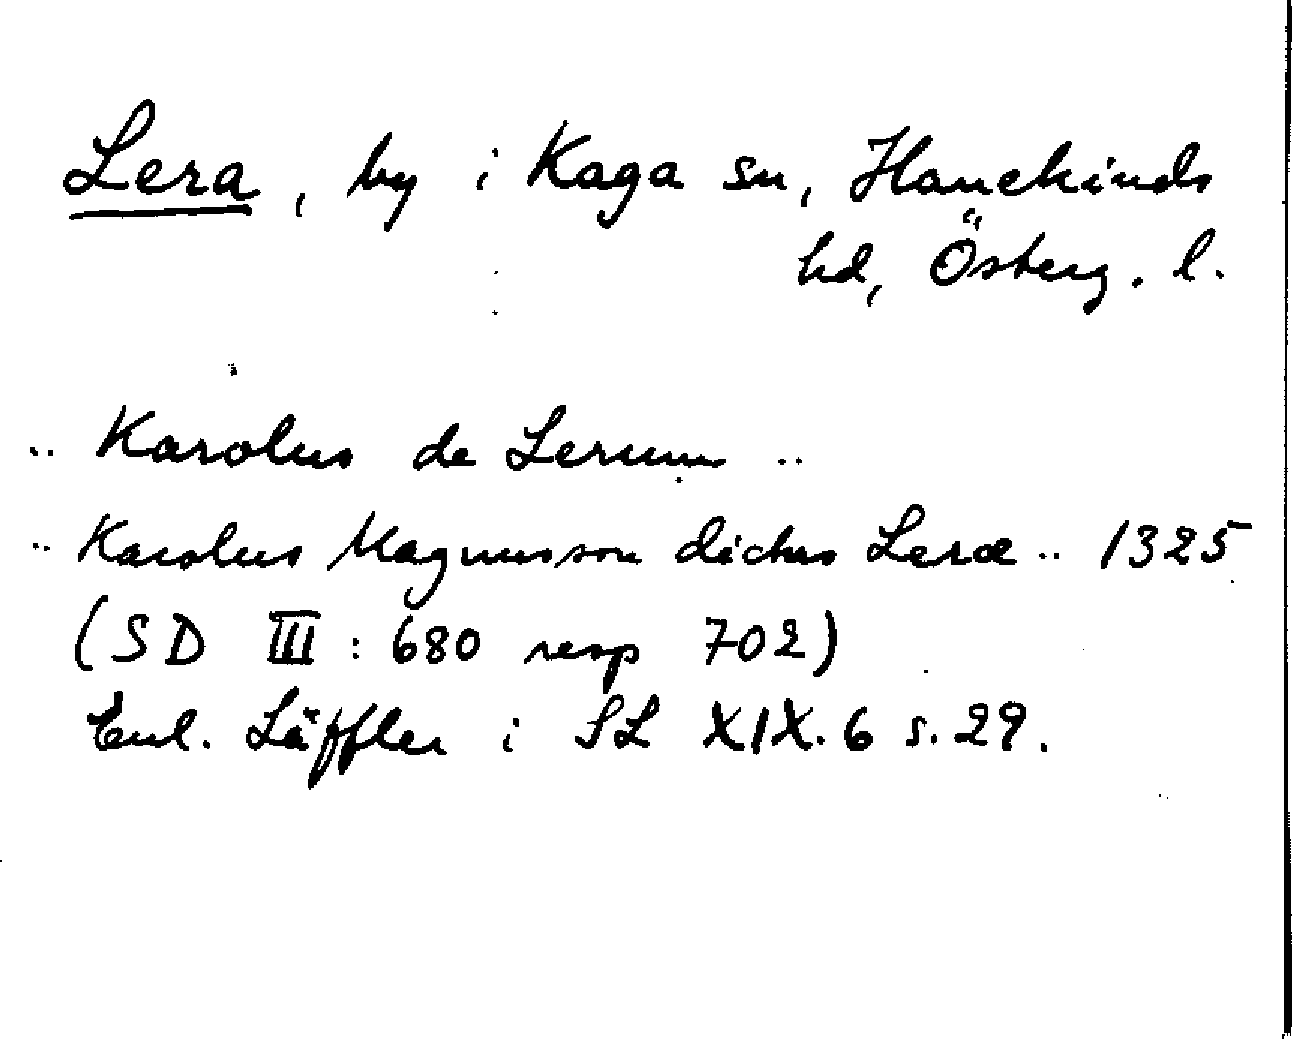 Lera, by i Kaga sn, Hanekinds
hd, Österg. l.
.. Karolus de Lerum ..
.. Karolus Magnusson dictus Leræ .. 1325
(SD III : 680 resp 702)
Enl. Läffler i SL XIX. 6 s. 29.